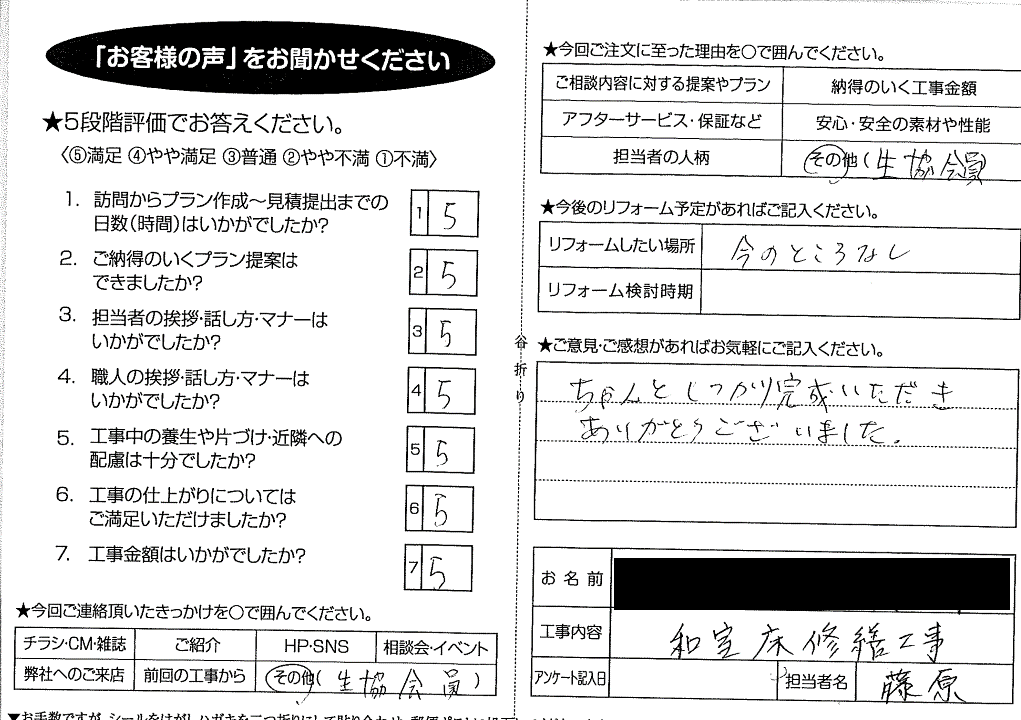 「お客様の声」をお聞かせください
★5段階評価でお答えください。
〈⑤満足 ④やや満足 ③普通 ②やや不満 ①不満〉
1. 訪問からプラン作成〜見積提出までの
日数(時間)はいかがでしたか?
1 5
2. ご納得のいくプラン提案は
できましたか?
2 5
3. 担当者の挨拶・話し方・マナーは
いかがでしたか?
3 5
4. 職人の挨拶・話し方・マナーは
いかがでしたか?
4 5
5. 工事中の養生や片づけ・近隣への
配慮は十分でしたか?
5 5
6. 工事の仕上がりについては
ご満足いただけましたか?
6 5
7. 工事金額はいかがでしたか?
7 5
★今回ご連絡頂いたきっかけを〇で囲んでください。
チラシ・CM・雑誌 ご紹介 HP・SNS 相談会・イベント
弊社へのご来店 前回の工事から その他(生協会員)
谷折り
★今回ご注文に至った理由を〇で囲んでください。
ご相談内容に対する提案やプラン 納得のいく工事金額
アフターサービス・保証など 安心・安全の素材や性能
担当者の人柄 その他(生協会員)
★今後のリフォーム予定があればご記入ください。
リフォームしたい場所 今のところなし
リフォーム検討時期
★ご意見・ご感想があればお気軽にご記入ください。
ちゃんとしっかり完成いただき
ありがとうございました。
お名前
工事内容 和室床修繕工事
アンケート記入日 担当者名 藤原